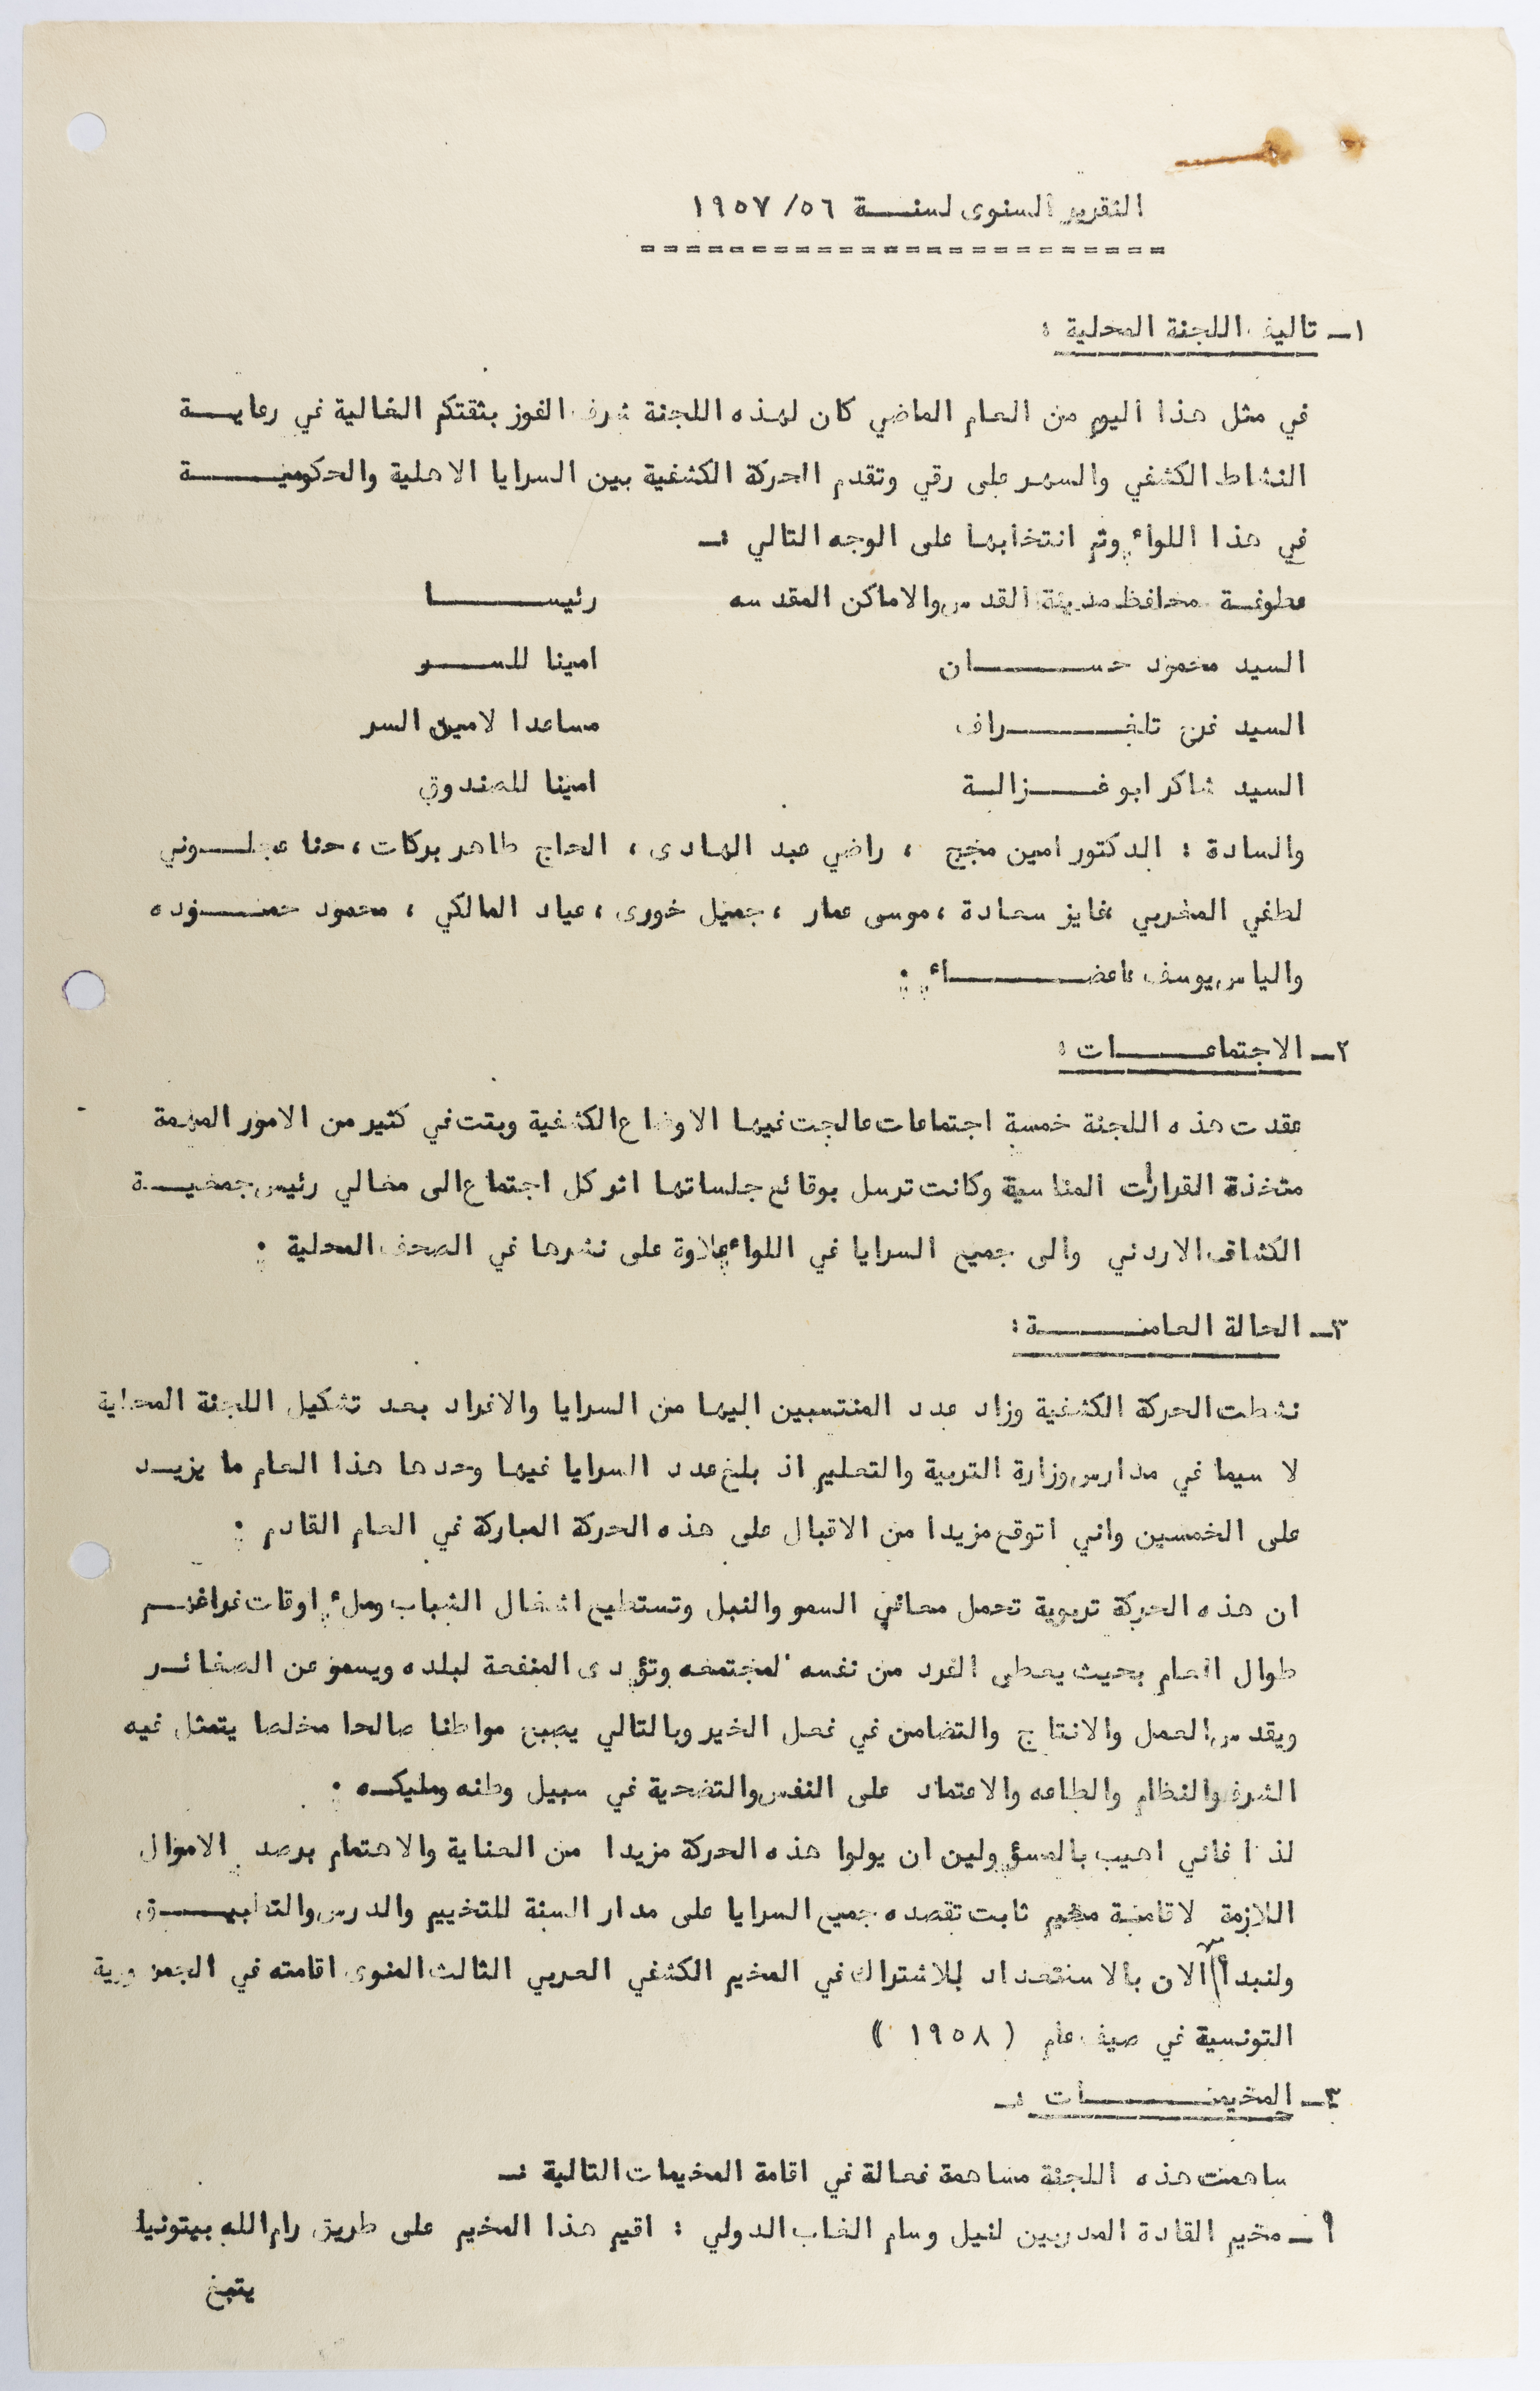 التقرير السنوى لسنة ٥٦/ ١٩٥٧
١ـ تاليف اللجنة المحلية :
في مثل هذا اليوم من العام الماضي كان لهذه اللجنة شرف الفوز بثقتكم الغالية في رعاية
النشاط الكشفي والسهر على رقي وتقدم الحركة الكشفية بين السرايا الاهلية والحكومية
في هذا اللواء وتم انتخابها على الوجه التالي :ـ
عطوفة محافظ مدينة القدس والاماكن المقدسه رئيسا
السيد محمود حسان امينا للسر
السيد تلغراف مساعدا لامين السر
السيد شاكر ابو غزالة امينا للصندوق
والسادة : الدكتور امين مجج ، راضي عبد الهادى ، الحاج طاهر بركات ، حنا عجلوني
لطفي المغربي ، فايز سعادة ، موسى عمار ، جميل خورى ، عياد المالكي ، محمود حموده
والياس يوسف اعضاء .
٢ـ الاجتماعات :
عقدت هذه اللجنة خمسة اجتماعات عالجت فيها الاوضاع الكشفية وبتت في كثير من الامور المهمة
متخذة القرارات المناسبة وكانت ترسل بوقائع جلساتها اثر كل اجتماع الى معالي رئيس جمعية
الكشاف الاردني والى جميع السرايا في اللواء علاوة على نشرها في الصحف المحلية .
٣ـ الحالة العامة :
نشطت الحركة الكشفية وزاد عدد المنتسبين اليها من السرايا والافراد بعد تشكيل اللجنة المحلية
لا سيما في مدارس وزارة التربية والتعليم اذ بلغ عدد السرايا فيها وحدها هذا العام ما يزيد
على الخمسين واني اتوقع مزيدا من الاقبال على هذه الحركة المباركة في العام القادم .
ان هذه الحركة تربوية تحمل معاني السمو والنبل وتستطيع اشغال الشباب وملء اوقات فراغهم
طوال العام بحيث يعطى الفرد من نفسه لمجتمعه وتؤدى المنفعة لبلده ويسمو عن الصغائر
ويقدس العمل والانتاج والتضامن في فعل الخير وبالتالي يصبح مواطنا صالحا مخلصا يتمثل فيه
الشرف والنظام والطاعه والاعتماد على النفس والتضحية في سبيل وطنه ومليكه .
لذا فاني اهيب بالمسؤولين ان يولوا هذه الحركة مزيدا من العناية والاهتمام برصد الاموال
اللازمة لاقامة مخيم ثابت تقصده جميع السرايا على مدار السنة للتخييم والدرس والتطبيق
ولنبدأ الان بالاستعداد للاشتراك في المخيم الكشفي العربي الثالث المنوى اقامته في الجمهورية
التونسية في صيف عام ( ١٩٥٨ )
٣ـ المخيمات :ـ
ساهمت هذه اللجنة مساهمة فعالة في اقامة المخيمات التالية :ـ
أ ـ مخيم القادة المدربين لنيل وسام الغاب الدولي : اقيم هذا المخيم على طريق رام الله بيتونيا
يتبع